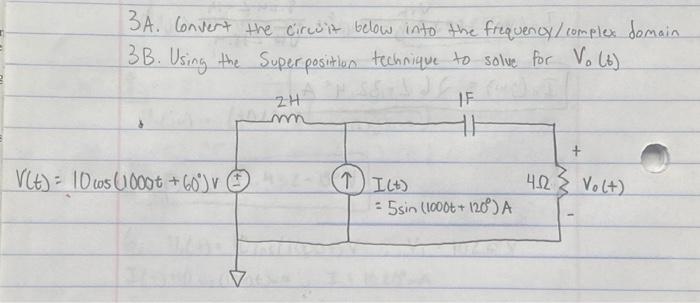 3A. Convert the circuit below into the frequency/complex domain
3B. Using the Superposition technique to solve for Vo(t)
2H
1F
+
V(t) = 10 cos(1000t + 60°) V
+
-
↑
I(t)
4Ω
Vo(t)
= 5 sin(1000t + 120°) A
-